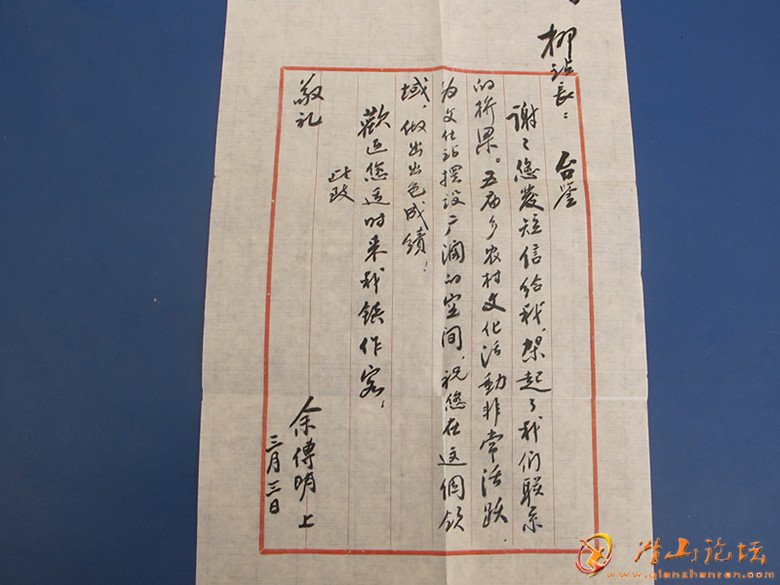 柳站长：
台鉴
谢谢您发短信给我，架起了我们联系
的桥梁。五庙乡农村文化活動非常活跃，
为文化站摆设广阔的空间，祝您在这個领
域，做出出色成绩！
歡迎您适时来我镇作客，
此致
敬礼
余傳明上
三月三日
潜山论坛
www.qianshanren.com